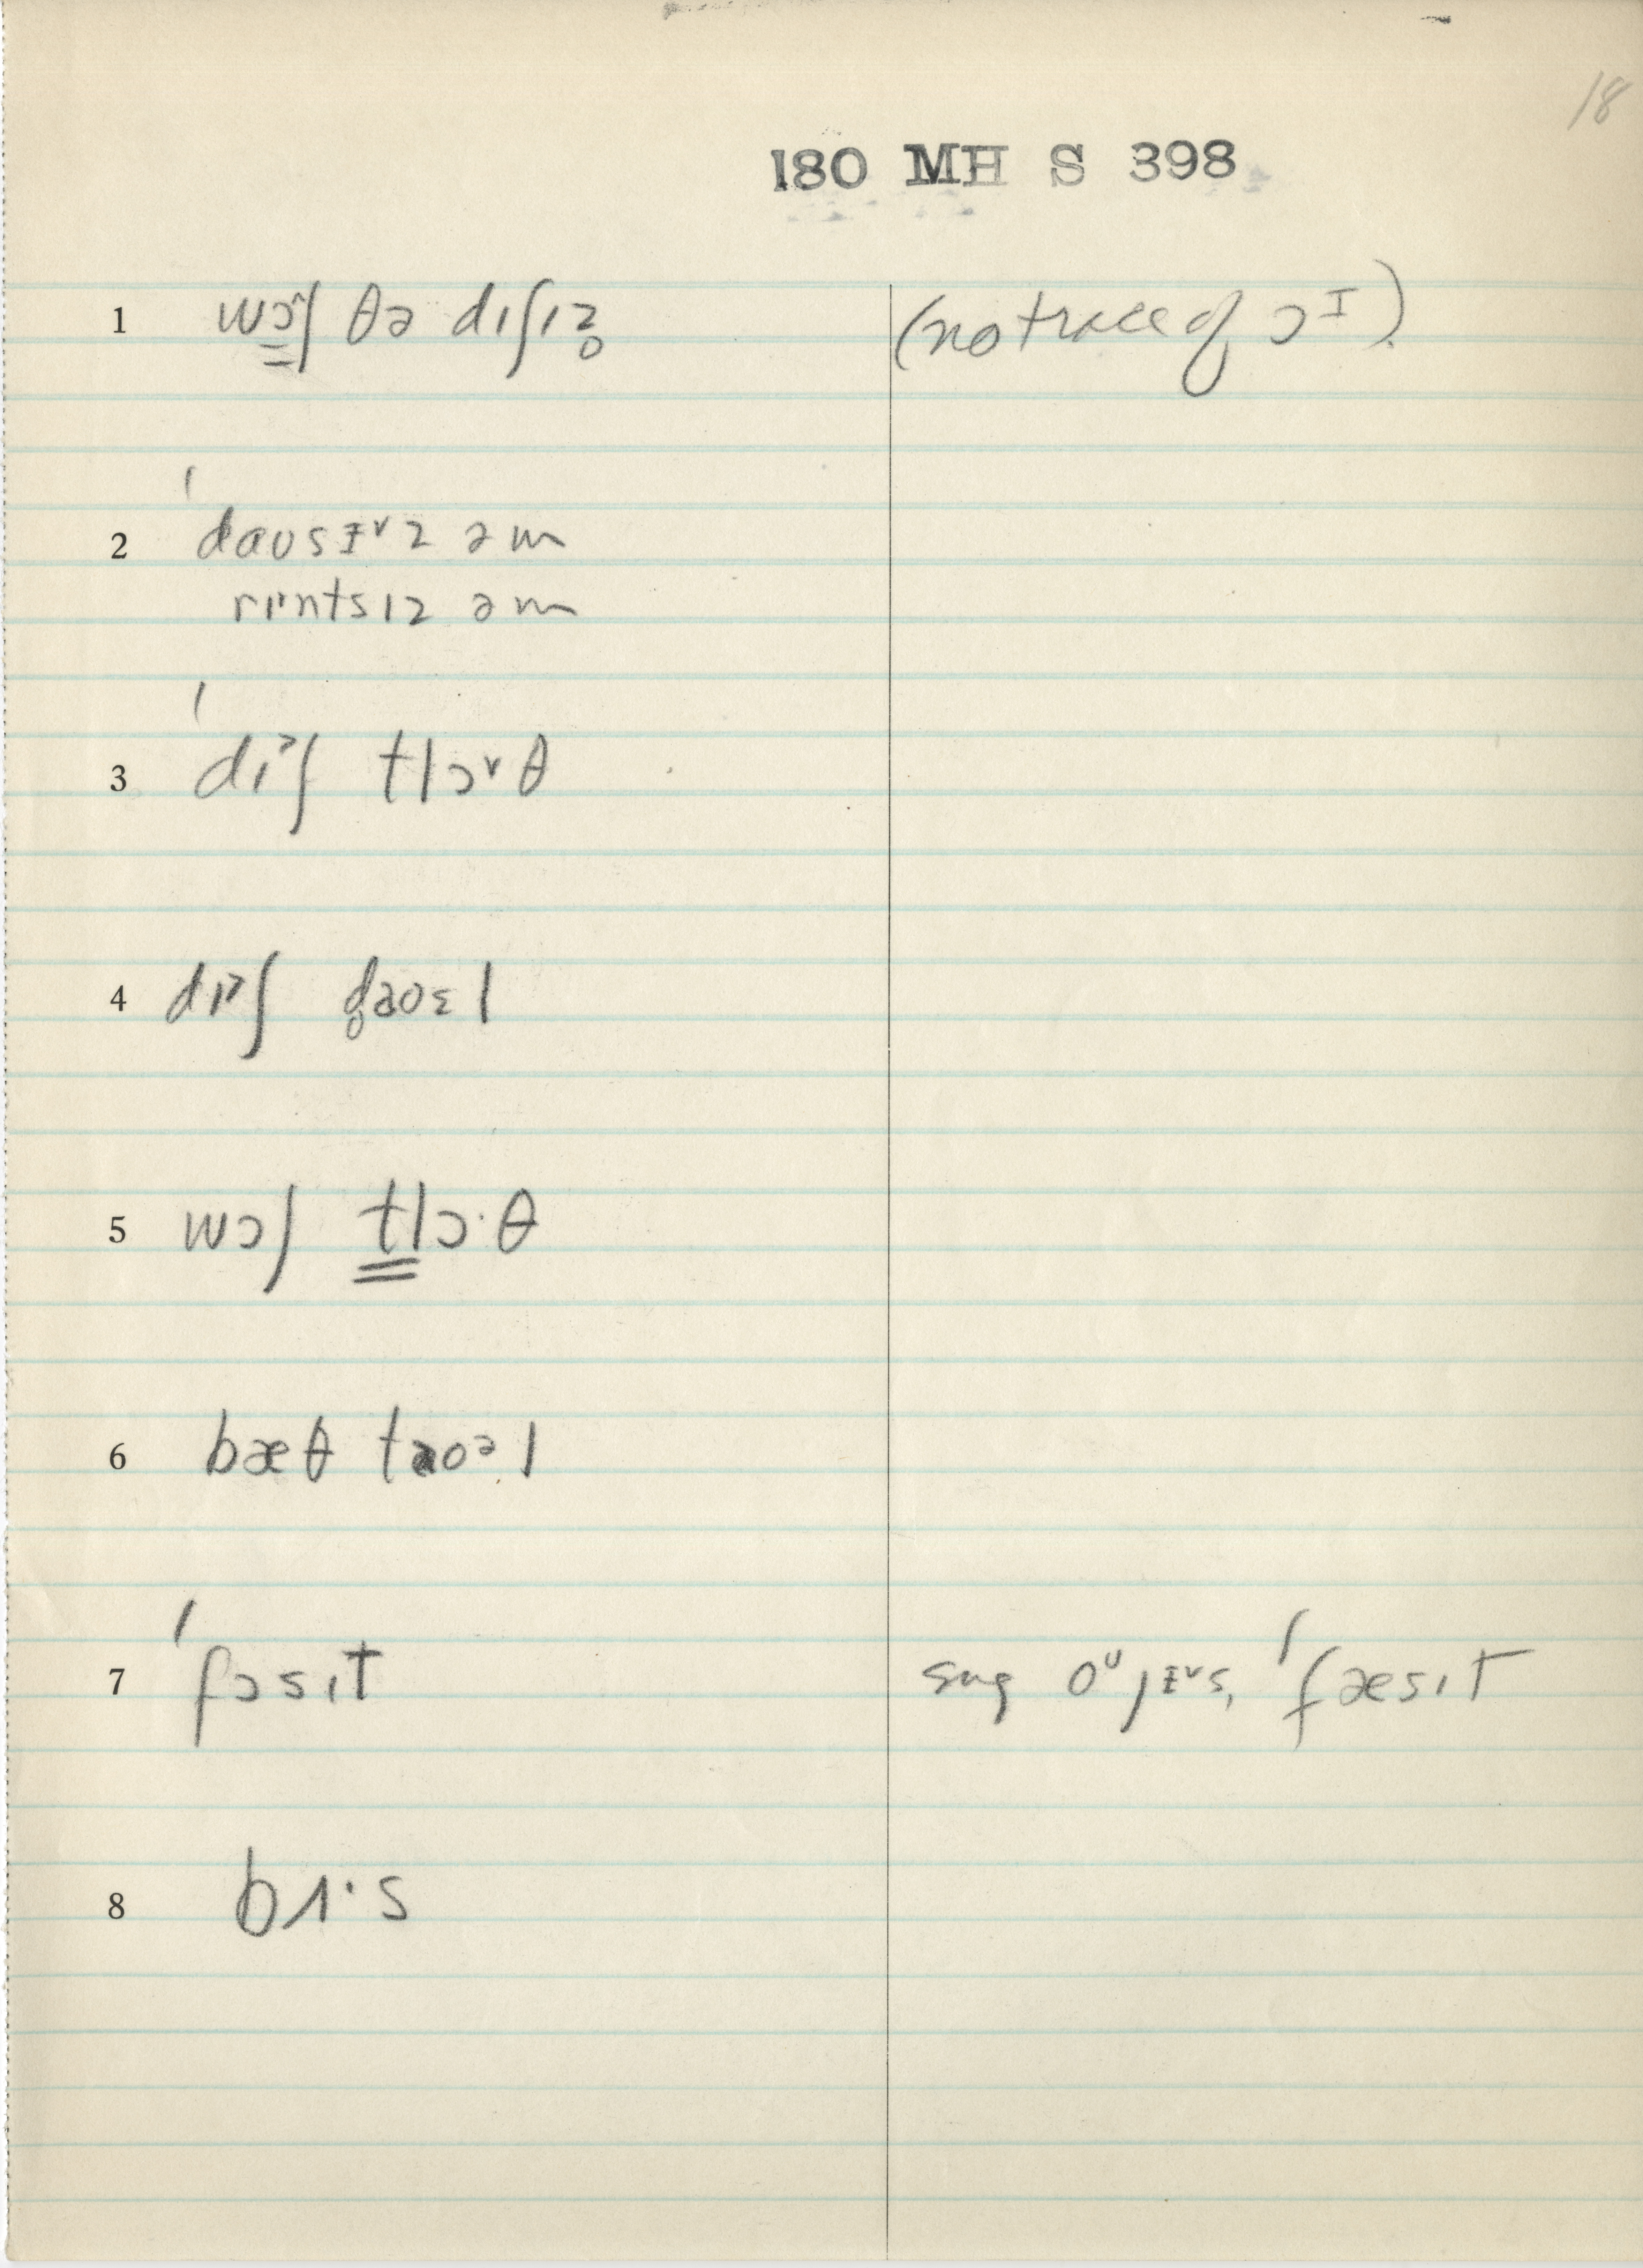 18
180 MH S 398
1 wɔ˄ʃ θə dɪʃɪz̥ (no trace of ɔᴵ).
2 ˈdaʊsᵻ˅z əm
rɪ˃ntsɪz əm
3 ˈdɪ˃ʃ tlɔ˅θ
4 dɪ˃ʃ d̥aʊɛl
5 wɔʃ tlɔ·θ
6 bæθ taʊəl
7 ˈfɔsɪt sug oᵁjᵻ˅s, ˈfæsɪt
8 bɪ·s